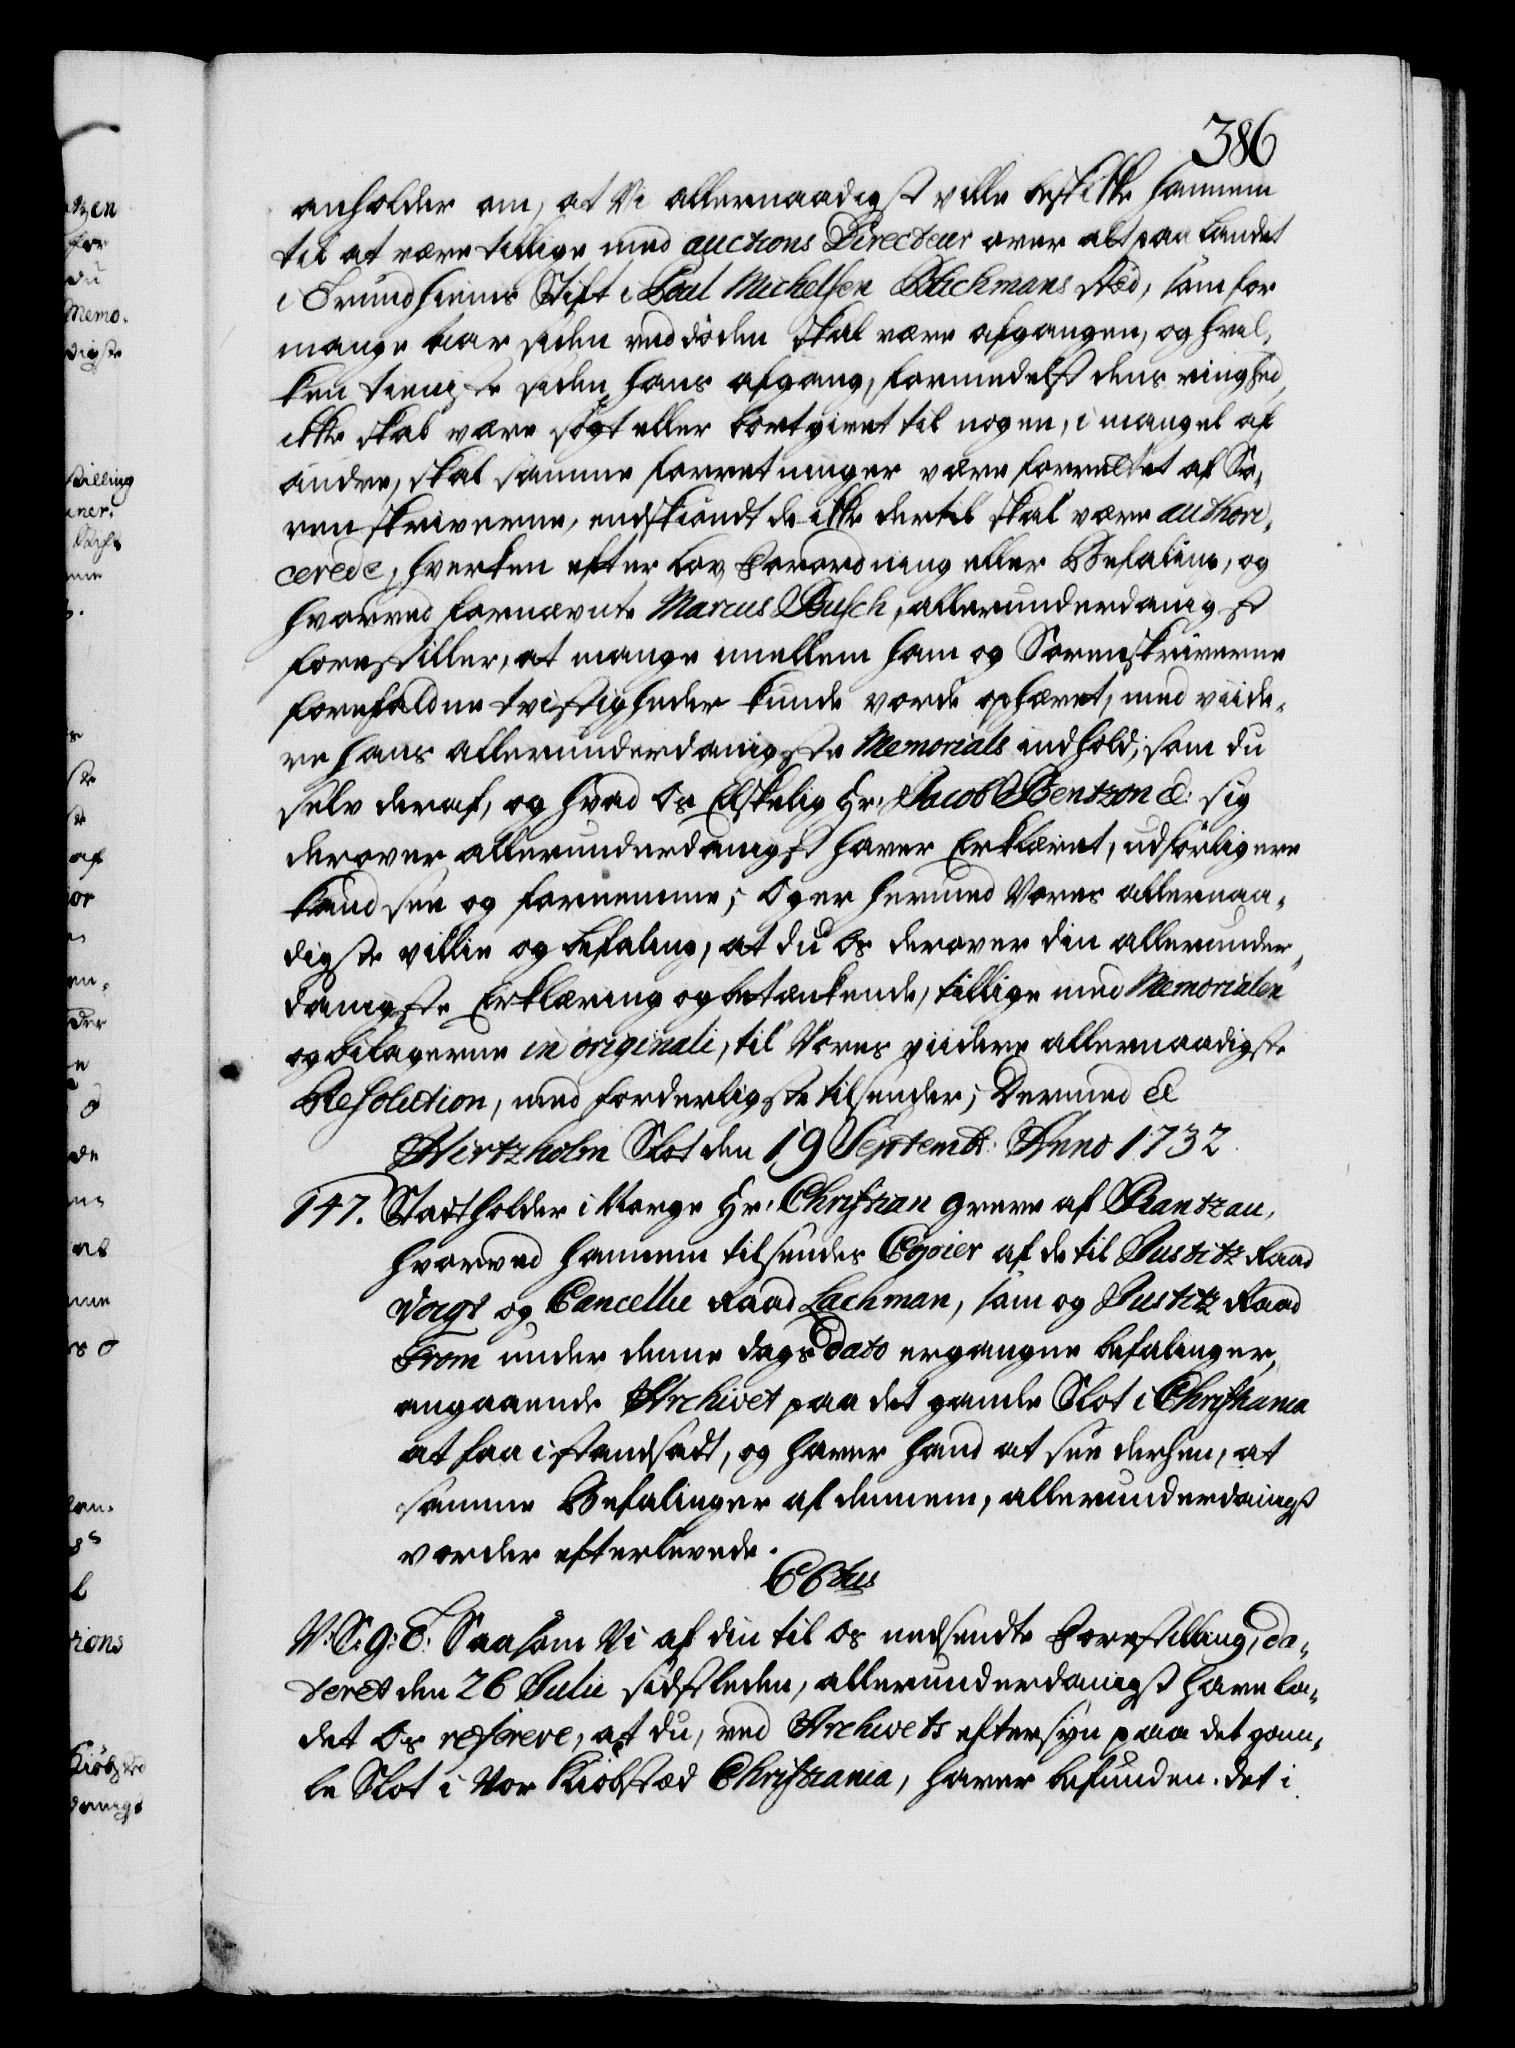 386
anholder om, at Vi allernaadigst ville beskikke hannem
til at være tillige med auctions Directeur over alt paa Landet
i Trundhiems Stift i Poul Michelsen Blichmans Sted, som for
mange Aar siden ved döden skal være afgangen, og hvil,
ken tieniste siden hans afgang, formedelst dens ringhed,
ikke skal være sögt eller bortgivet til nogen, i mangel af
anden, skal samme forretninger være forrettet af So,
renskriverne, endskiöndt de ikke dertil skal være authori,
cerede, hverken efter Lov, Forordning eller Befaling, og
hvorved fornævnte Marcus Busch, allerunderdanigst
forestiller, at mange imellem ham og Sorenskriverne
forefaldne tvistigheder kunde vorde ophævet, med viide,
re hans allerunderdanigste Memorials indhold, som du
selv deraf, og hvad Os Elskelig Hr. Jacob Bentzon &: sig
derover allerunderdanigst haver Erklæret, udförligere
kand see og fornemme; Og er hermed Vores allernaa,
digste villie og befaling, at du Os derover din allerunder,
danigste Erklæring og betænkende, tillige med Memorialen
og bilagerne in originali, til Vores viidere allernaadigste
Resolution, med forderligste tilsender; Dermed &
Hirtzholm Slot den 19 Septembr: Anno 1732
147. Stadtholder i Norge Hr. Christian Greve af Rantzau,
hvorved hannem tilsendes Copier af de til Justitz Raad
Voigt og Cancellie Raad Lachman, som og Justitz Raad
From under denne dags Dato ergangne befalinger,
angaaende Archivet paa det gamle Slot i Christiania
at faa i standsadt, og haver hand at see derhen, at
samme Befalinger af dennem, allerunderdanigst
vorder efterlevede.
C 6tus
V: S: G: T: Saasom Vi af din til Os nedsendte Forestilling, da,
teret den 26 Julii sidstleden, allerunderdanigst have la,
det Os referere, at du, ved Archivets eftersyn paa det gam,
le Slot i Vor Kiöbsted Christiania, haver befunden det i